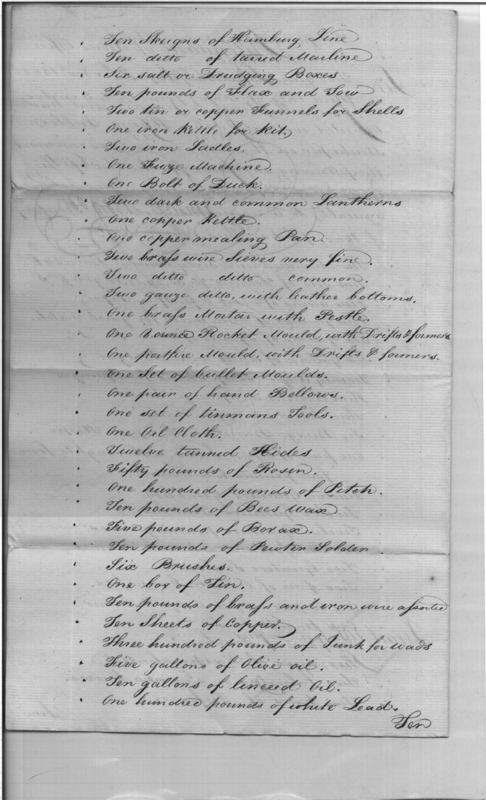 Ten Skeigns of Hamburg Line
Ten ditto of tarred Marline
Six salt or Drudging Boxes
Ten pounds of Flax and Tow
Two tin or copper Funnels for Shells
One iron Kettle for Kit,
Two iron Ladles.
One Fuze Machine.
One Bolt of Duck.
Two dark and common Lantherns
One copper Kettle.
One copper mealing Pan.
Two brass wire Sieves very fine.
Two ditto ditto common.
Two gauze ditto, with leather bottoms.
One brass Mortar with Pestle.
One ounce Rocket Mould, with Drifts & formers
One portfire Mould, with Drifts & formers.
One Set of bullet Moulds.
One pair of hand Bellows.
One set of tinmans Tools.
One Oil Cloth.
Twelve tanned Hides
Fifty pounds of Rosin.
One hundred pounds of Pitch.
Ten pounds of Bees Wax
Five pounds of Borax.
Ten pounds of Pewter Solder.
Six Brushes.
One box of Tin.
Ten pounds of brass and iron wire assorted
Ten Sheets of Copper.
Three hundred pounds of Junk for wads
Five gallons of Olive oil.
Ten gallons of linceed Oil.
One hundred pounds of white Lead.
Ten